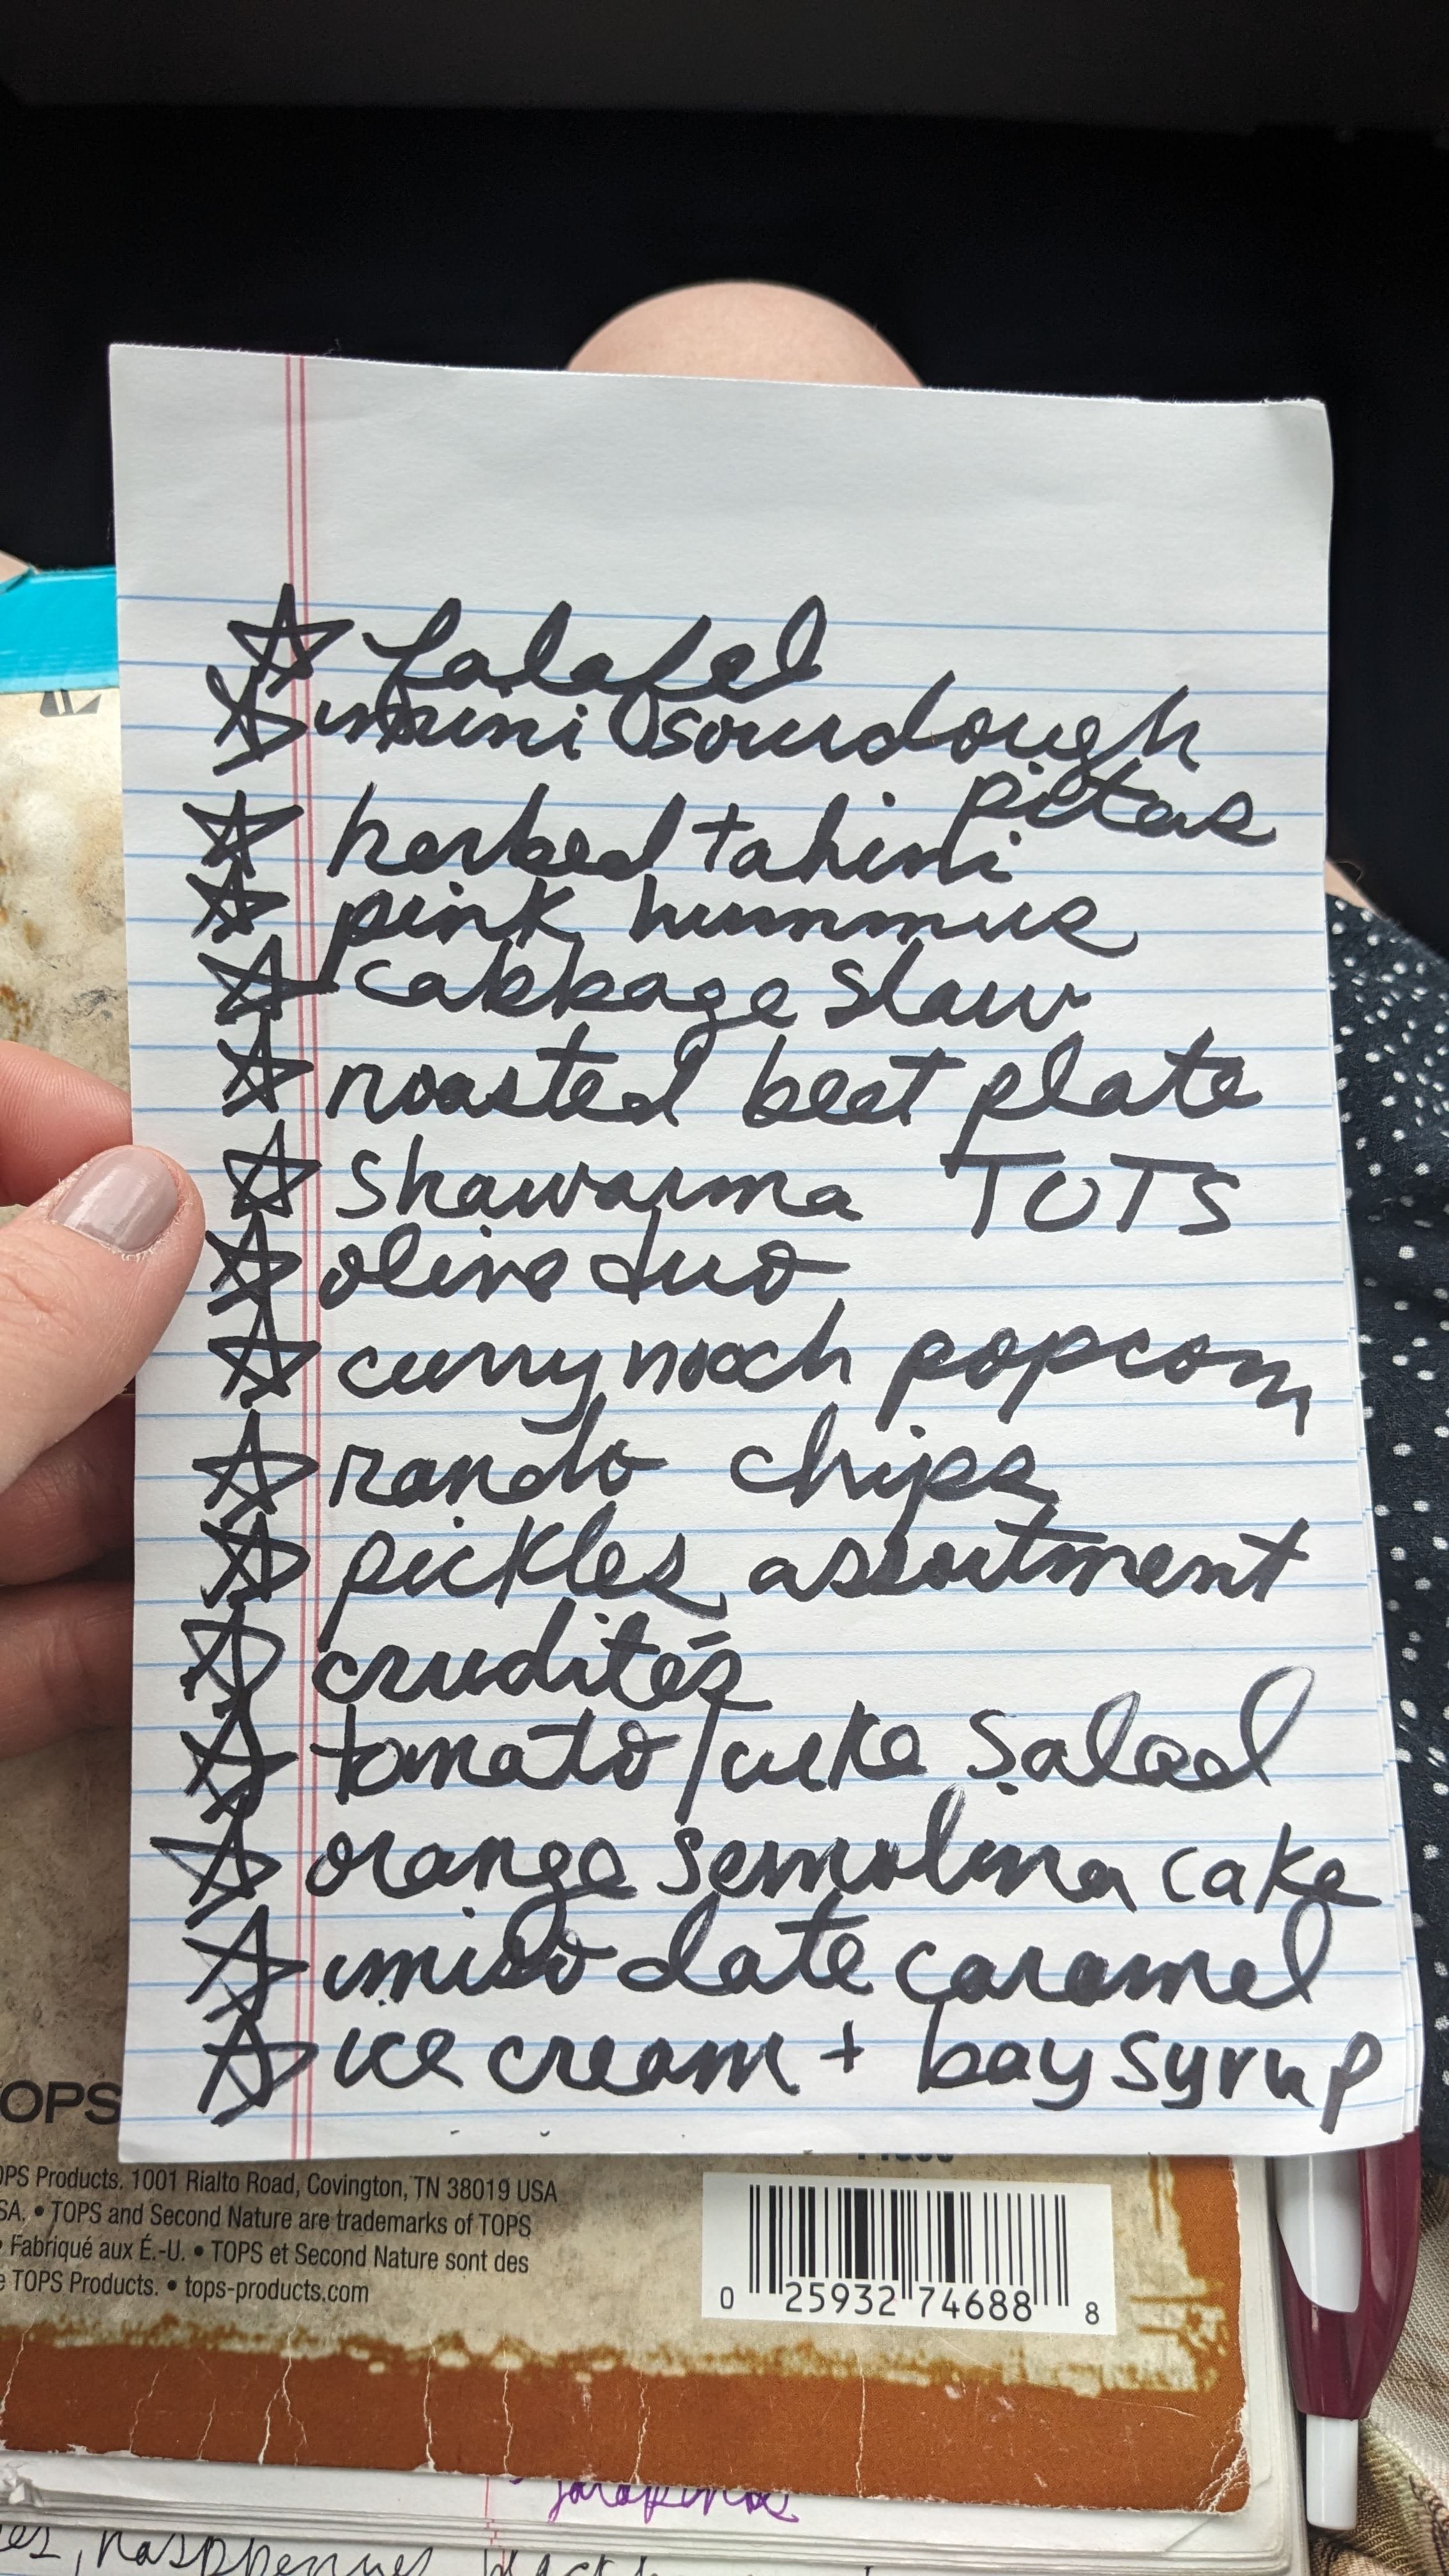 falafel
mini sourdough
pitas
herbed tahini
pink hummus
cabbage slaw
roasted beet plate
shawarma TOTS
olive duo
curry nooch popcorn
rando chips
pickles assortment
crudités
tomato/cuke salad
orange semolina cake
miso date caramel
ice cream + bay syrup
OPS
OPS Products. 1001 Rialto Road, Covington, TN 38019 USA
SA. • TOPS and Second Nature are trademarks of TOPS
• Fabriqué aux É.-U. • TOPS et Second Nature sont des
e TOPS Products. • tops-products.com
0 25932 74688 8